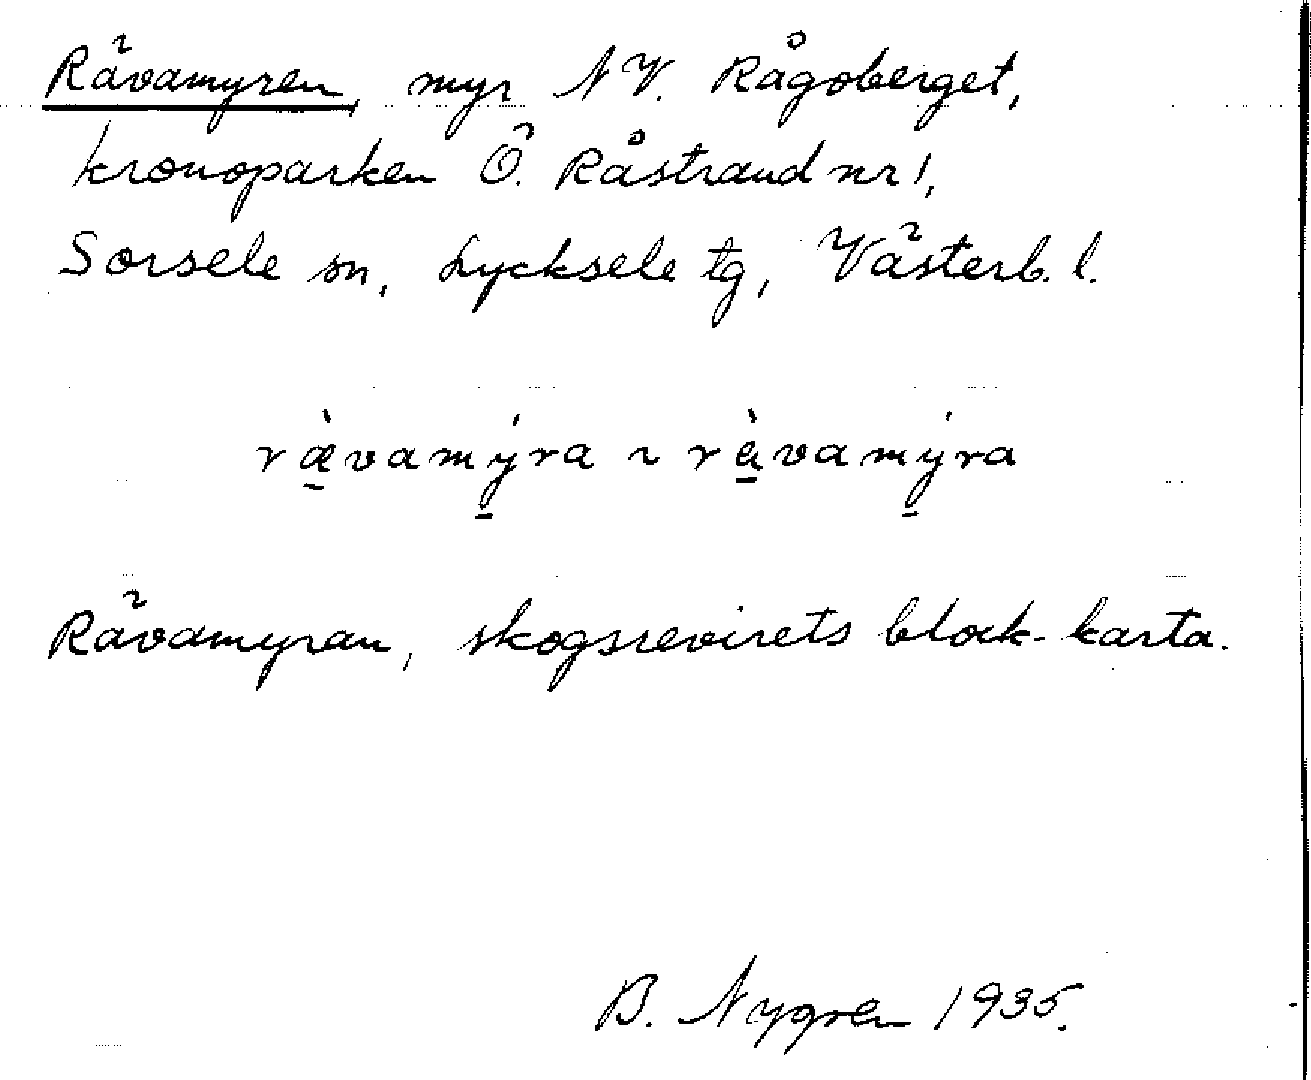 Rävamyren, myr NV. Rågoberget,
kronoparken Ö. Råstrand nr 1,
Sorsele sn, Lycksele tg, Västerb. l.
ræ̠̀vamý̠ra ~ rà̠vamý̠ra
Rävamyran, skogsrevirets block-karta.
B. Nygren 1935.